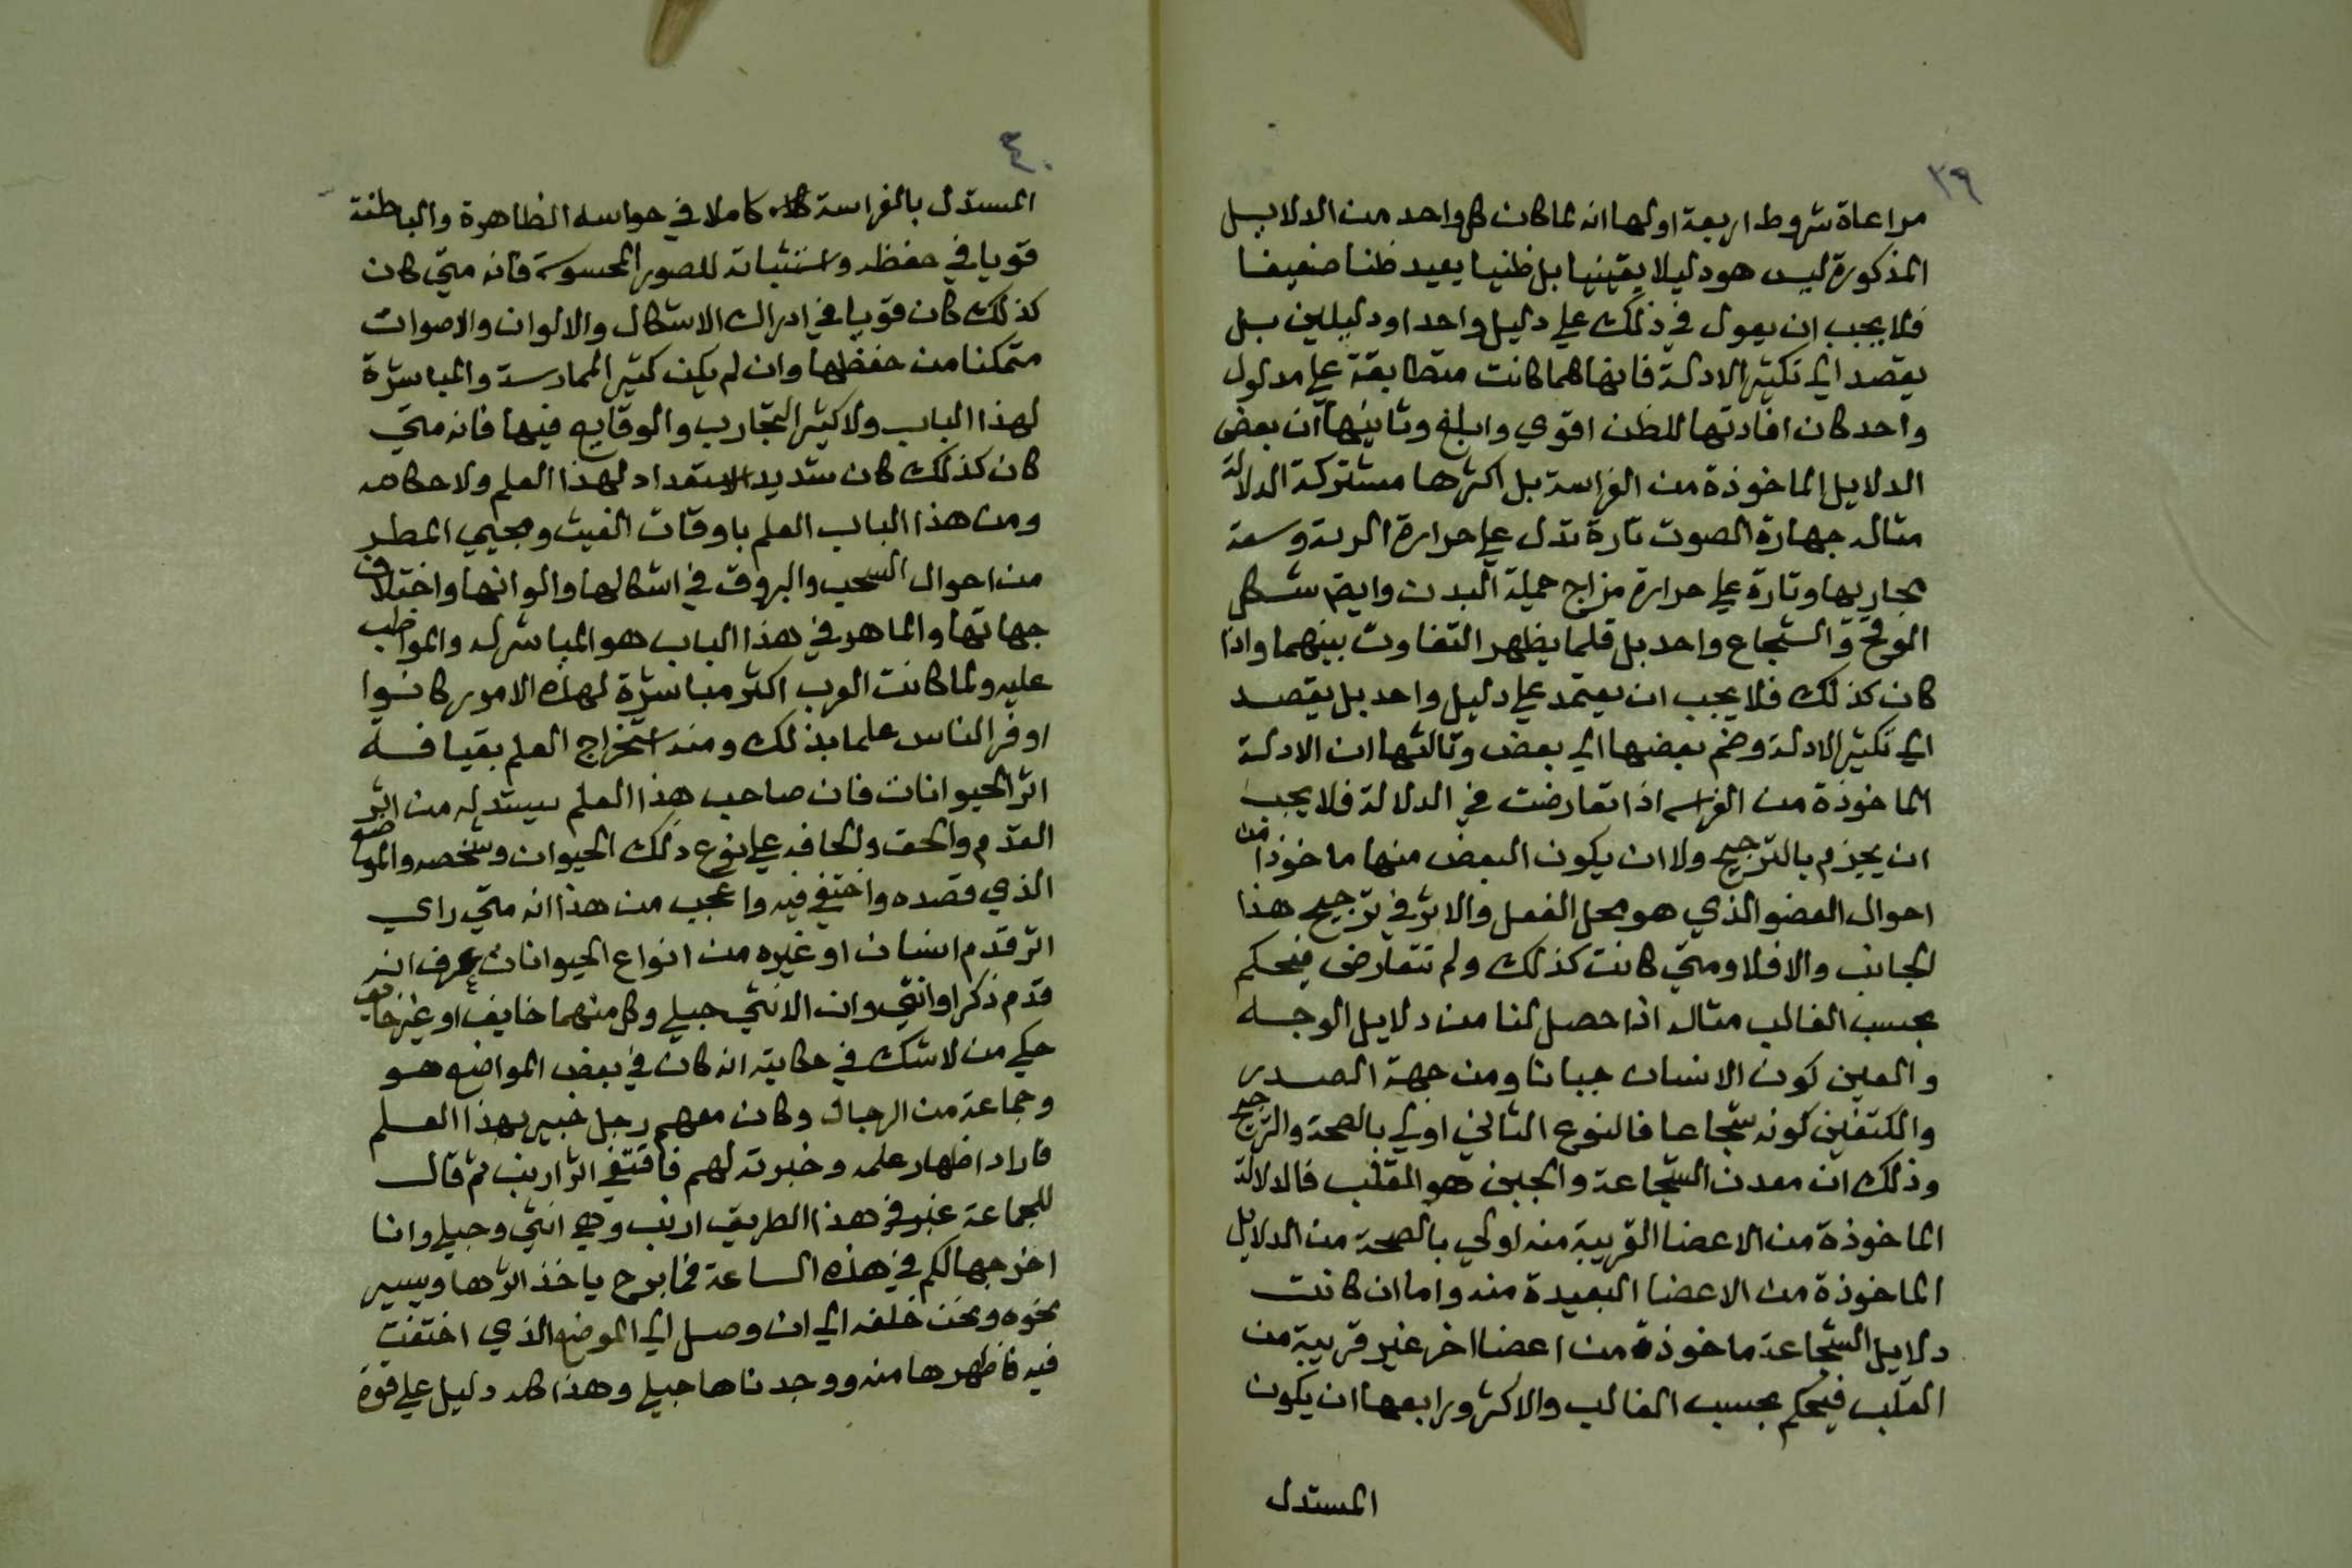 ٣٩
مراعاة شروط اربعة اولها انه لما كان كل واحد من الدلايل
المذكورة ليس هو دليلا يقينيا بل ظنيا يفيد ظنا ضعيفا
فلا يجب ان يعول في ذلك علي دليل واحد او دليلين بل
يقصد الي تكثير الادلة فانها هما كانت متطابقة علي مدلول
واحد كان افادتها للظن اقوي وابلغ وثانيها ان بعض
الدلايل الماخوذة من الفراسة بل اكثرها مشتركة الدلالة
مثاله جهارة الصوت تارة تدل علي حرارة الرية وسعة
مجاريها وتارة علي حرارة مزاج جملة البدن وايضا شكل
الوقح والشجاع واحد بل قلما يظهر التفاوت بينهما واذا
كان كذلك فلا يجب ان يعتمد علي دليل واحد بل يقصد
الي تكثير الادلة وضم بعضها الي بعض وثالثها ان الادلة
الماخوذة من الفراسه اذا تعارضت في الدلالة فلا يجب
ان يجزم بالترجيح ولا ان يكون البعض منها ماخوذا من
احوال العضو الذي هو محل الفعل والاثر في ترجيح هذا
الجانب والا فلا ومتي كانت كذلك ولم تتعارض فيحكم
بحسب الغالب مثاله اذا حصل لنا من دلايل الوجه
والعين كون الانسان جبانا ومن جهة الصدر
والكتفين كونه شجاعا فالنوع الثاني اولي بالصحة والترجيح
وذلك ان معدن الشجاعة والجبن هو القلب فالدلالة
الماخوذة من الاعضا القريبة منه اولي بالصحة من الدلايل
الماخوذة من الاعضا البعيدة منه واما ان كانت
دلايل الشجاعة ماخوذة من اعضا اخر غير قريبة من
القلب فيحكم بحسب الغالب والاكثر ورابعها ان يكون
المستدل
٤٠
المستدل بالفراسة كاملا في حواسه الظاهرة والباطنة
قويا في حفظه واستثباته للصور المحسوسة فانه متي كان
كذلك كان قويا في ادراك الاشكال والالوان والاصوات
متمكنا من حفظها وان لم يكن كثير الممارسة والمباشرة
لهذا الباب ولا كثير التجارب والوقايع فيها فانه متي
كان كذلك كان شديد الاستعداد لهذا العلم ولاحكامه
ومن هذا الباب العلم باوقات الغيث ومجيي المطر
من احوال السحب والبروق في اشكالها والوانها واختلاف
جهاتها والماهر في هذا الباب هو المباشر له والمواظب
عليه ولما كانت العرب اكثر مباشرة لهذه الامور كانوا
اوفر الناس علما بذلك ومنه استخراج العلم بقيافة
اثر الحيوانات فان صاحب هذا العلم يستدل من اثر
القدم والخف والحافر علي نوع ذلك الحيوان وشخصه والموضع
الذي قصده واختفي فيه واعجب من هذا انه متي راي
اثر قدم انسان او غيره من انواع الحيوانات عرف انه
قدم ذكر او انثي وان الانثي حبلي وكل منهما خايف او غير خايف
حكي من لا شك في حكايته انه كان في بعض المواضع هو
وجماعة من الرجال وكان معهم رجل خبير بهذا العلم
فاراد اظهار علمه وخبرته لهم فاقتفي اثر ارنب ثم قال
للجماعة عبر في هذا الطريق ارنب وهي انثي وحبلي وانا
اخرجها لكم في هذه الساعة فما برح ياخذ اثرها ويسير
نحوه ونحن خلفه الي ان وصل الي الموضع الذي اختفت
فيه فاظهرها منه ووجدناها حبلي وهذا كله دليل علي قوة